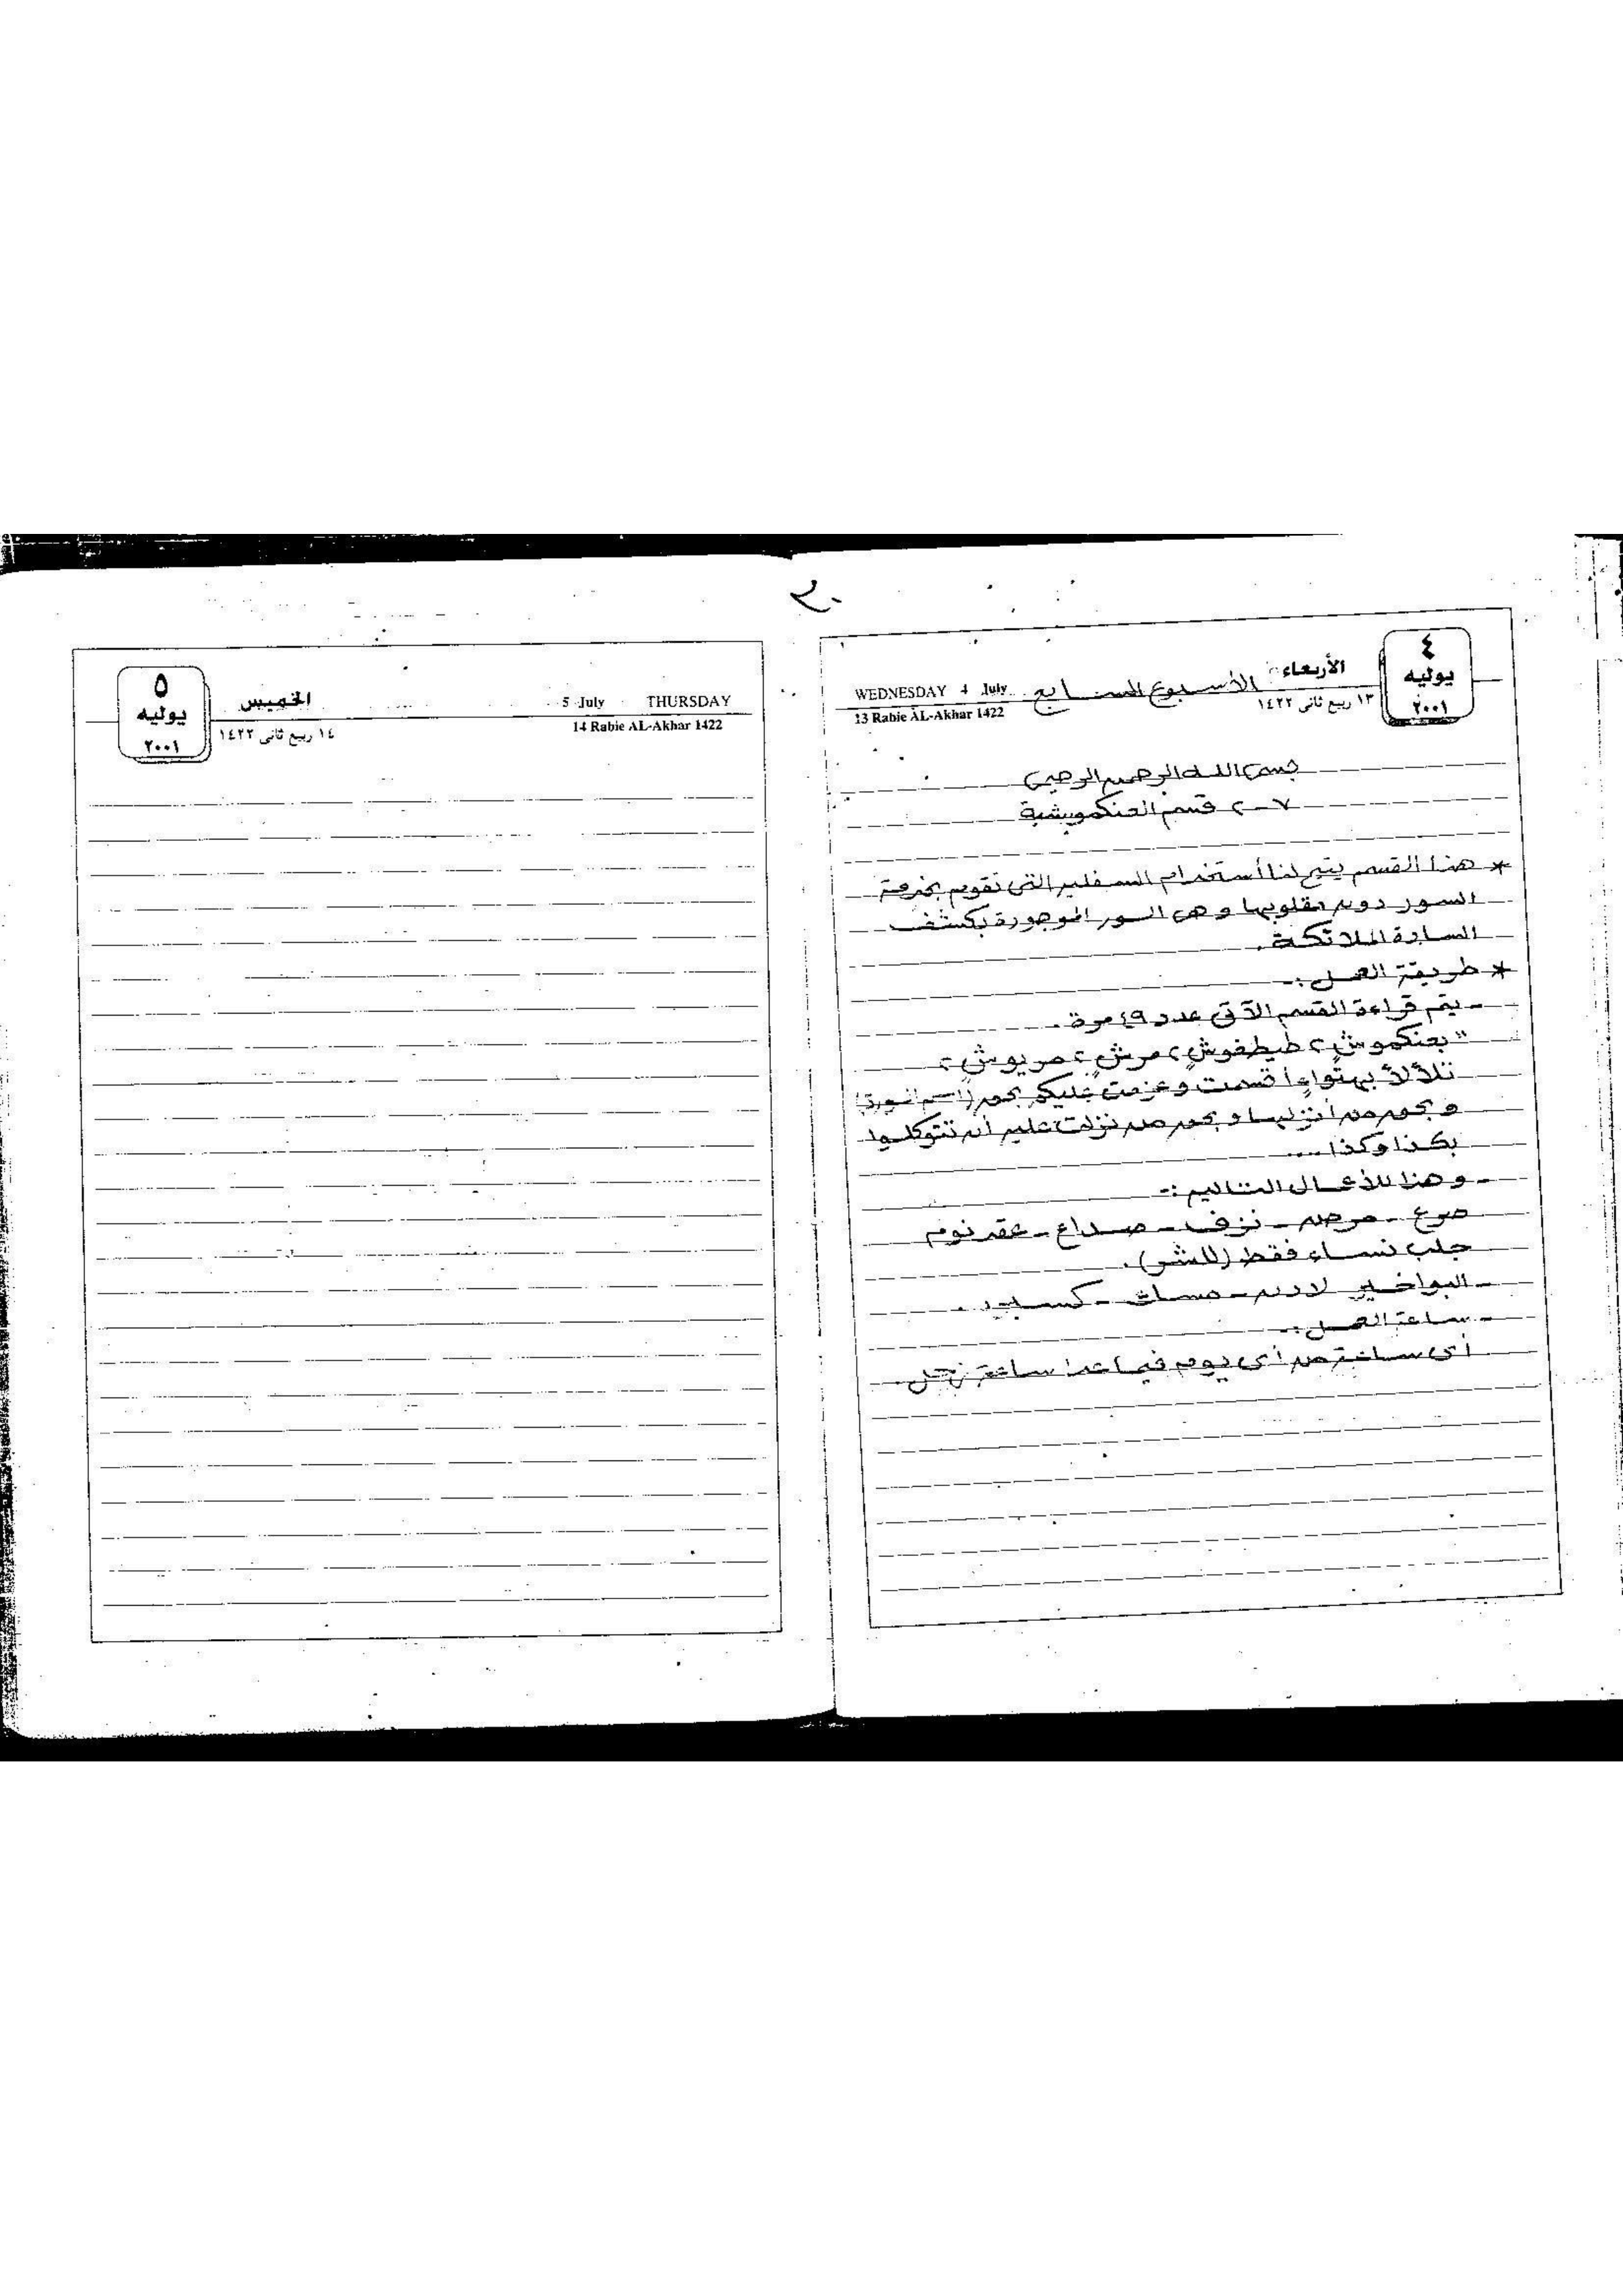 ٢٠
٤
يوليه
٢٠٠١
الأربعاء
١٣ ربيع ثانى ١٤٢٢
الأسبوع السابع
WEDNESDAY 4 July
13 Rabie AL-Akhar 1422
بسم الله الرحمن الرحيم
٧-٢ قسم العنكموشية
* هذا القسم يتيح لنا أستخدام السفلين التى تقوم بخدمة
السور دون مقلوبها وهى السور الموجودة بكشف
السادة الملائكة.
* طريقة العمل :-
- يتم قراءة القسم الآتى عدد ٤٩ مرة.
" بعنكموشٍ ، طيطفوشٍ ، مرشٍ ، مريوشٍ ،
تلألأ بهتواءٍ أقسمت وعزمت عليكم بحق (اسم السورة)
وبحق من أنزلها وبحق من نزلت عليه أن تتوكلوا
بكذا وكذا ....
- وهذا للأعمال التاليه :-
صرع - مرض - نزف - صداع - عقد نوم
جلب نساء فقط (للشر).
- البواخير لادن - مسات - كسبر.
- ساعة العمل :-
أى ساعة من أى يوم فيما عدا ساعة زحل.
٥
يوليه
٢٠٠١
الخميس
١٤ ربيع ثانى ١٤٢٢
5 July THURSDAY
14 Rabie AL-Akhar 1422